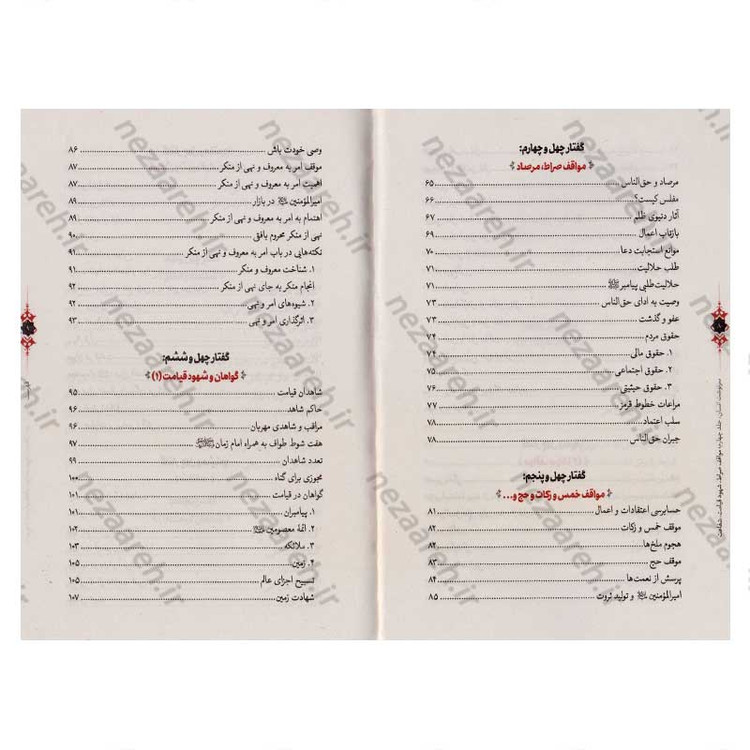 گفتار چهل و چهارم:
مواقف صراط، مرصاد
مرصاد و حق‌الناس ۶۵
مفلس کیست؟ ۶۶
آثار دنیوی ظلم ۶۷
بازتاب اعمال ۶۹
موانع استجابت دعا ۷۰
طلب حلالیت ۷۱
حلالیت‌طلبی پیامبر ﷺ ۷۱
وصیت به ادای حق‌الناس ۷۳
عفو و گذشت ۷۳
حقوق مردم ۷۴
۱. حقوق مالی ۷۴
۲. حقوق اجتماعی ۷۵
۳. حقوق حیثیتی ۷۶
مراعات خطوط قرمز ۷۷
سلب اعتماد ۷۸
جبران حق‌الناس ۷۸
گفتار چهل و پنجم:
مواقف خمس و زکات و حج و...
حسابرسی اعتقادات و اعمال ۸۱
موقف خمس و زکات ۸۲
هجوم ملخ‌ها ۸۲
موقف حج ۸۳
پرسش از نعمت‌ها ۸۴
امیرالمؤمنین و تولید ثروت ۸۵
سرنوشت انسان، جلد چهارم: مواقف صراط، شهود قیامت، شفاعت
وصی خودت باش ۸۶
موقف امر به معروف و نهی از منکر ۸۷
اهمیت امر به معروف و نهی از منکر ۸۷
امیرالمؤمنین در بازار ۸۹
اهتمام به امر به معروف و نهی از منکر ۸۹
نهی از منکر محروم بافقی ۹۰
نکته‌هایی در باب امر به معروف و نهی از منکر ۹۱
۱. شناخت معروف و منکر ۹۱
انجام منکر به جای نهی از منکر ۹۲
۲. شیوه‌های امر و نهی ۹۲
۳. اثرگذاری امر و نهی ۹۳
گفتار چهل و ششم:
گواهان و شهود قیامت (۱)
شاهدان قیامت ۹۵
حاکم شاهد ۹۶
مراقب و شاهدی مهربان ۹۶
هفت شوط طواف به همراه امام زمان ۹۷
تعدد شاهدان ۹۹
مجوزی برای گناه ۱۰۰
گواهان در قیامت ۱۰۱
۱. پیامبران ۱۰۱
۲. ائمهٔ معصومین ۱۰۲
۳. ملائکه ۱۰۳
۴. زمین ۱۰۵
تسبیح اجزای عالم ۱۰۵
شهادت زمین ۱۰۷
nezaareh.ir